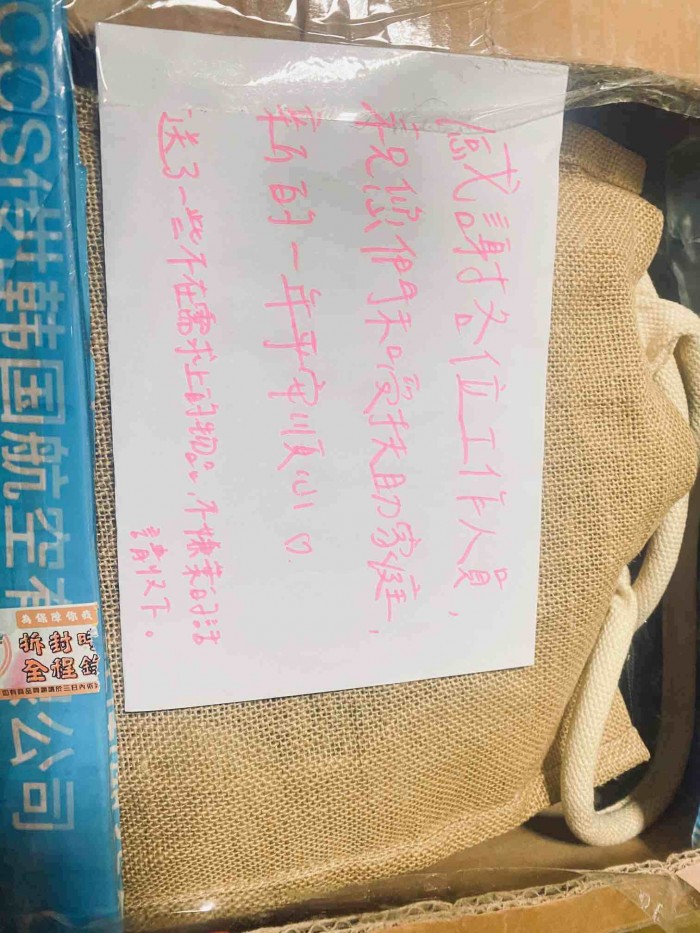 感謝各位工作人員，
祝您們和受扶助家庭，
新的一年平安順心♡.
送了一些不在需求上的物品，不嫌棄的話
請收下。
CCS优世韩国航空有限公司
拆封時
全程錄